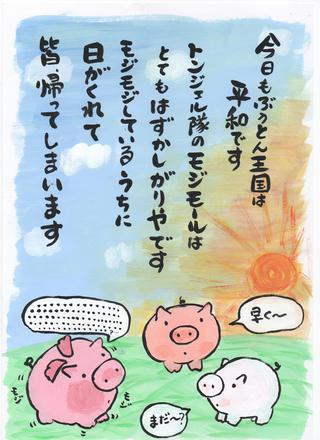 今日もぶぅとん王国は
平和です
トンジェル隊のモジモールは
とてもはずかしがりやです
モジモジしているうちに
日がくれて
皆帰ってしまいます
早く〜
まだ〜?
モジ
モジ